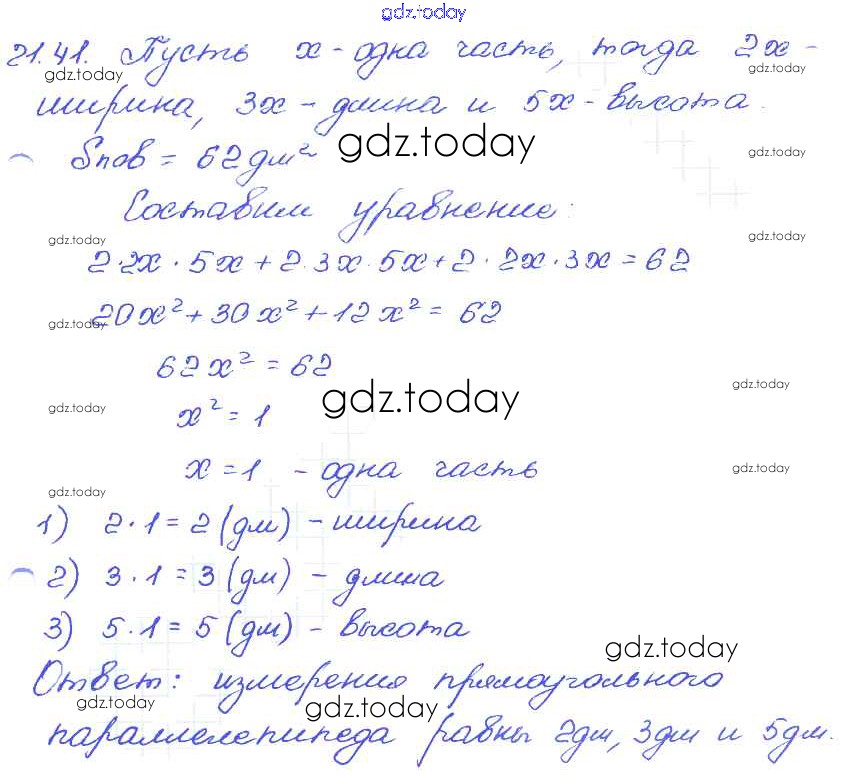 gdz.today
21.41. Пусть x - одна часть, тогда 2x -
gdz.today gdz.today
ширина, 3x - длина и 5x - высота.
Sпов = 62 дм² gdz.today gdz.today
Составим уравнение:
gdz.today gdz.today
2·2x·5x + 2·3x·5x + 2·2x·3x = 62
20x² + 30x² + 12x² = 62
gdz.today
62x² = 62
gdz.today
x² = 1
gdz.today gdz.today
x = 1 - одна часть
gdz.today gdz.today
1) 2·1 = 2 (дм) - ширина
2) 3·1 = 3 (дм) - длина
3) 5·1 = 5 (дм) - высота
gdz.today
Ответ: измерения прямоугольного
gdz.today gdz.today
параллелепипеда равны 2дм, 3дм и 5дм.